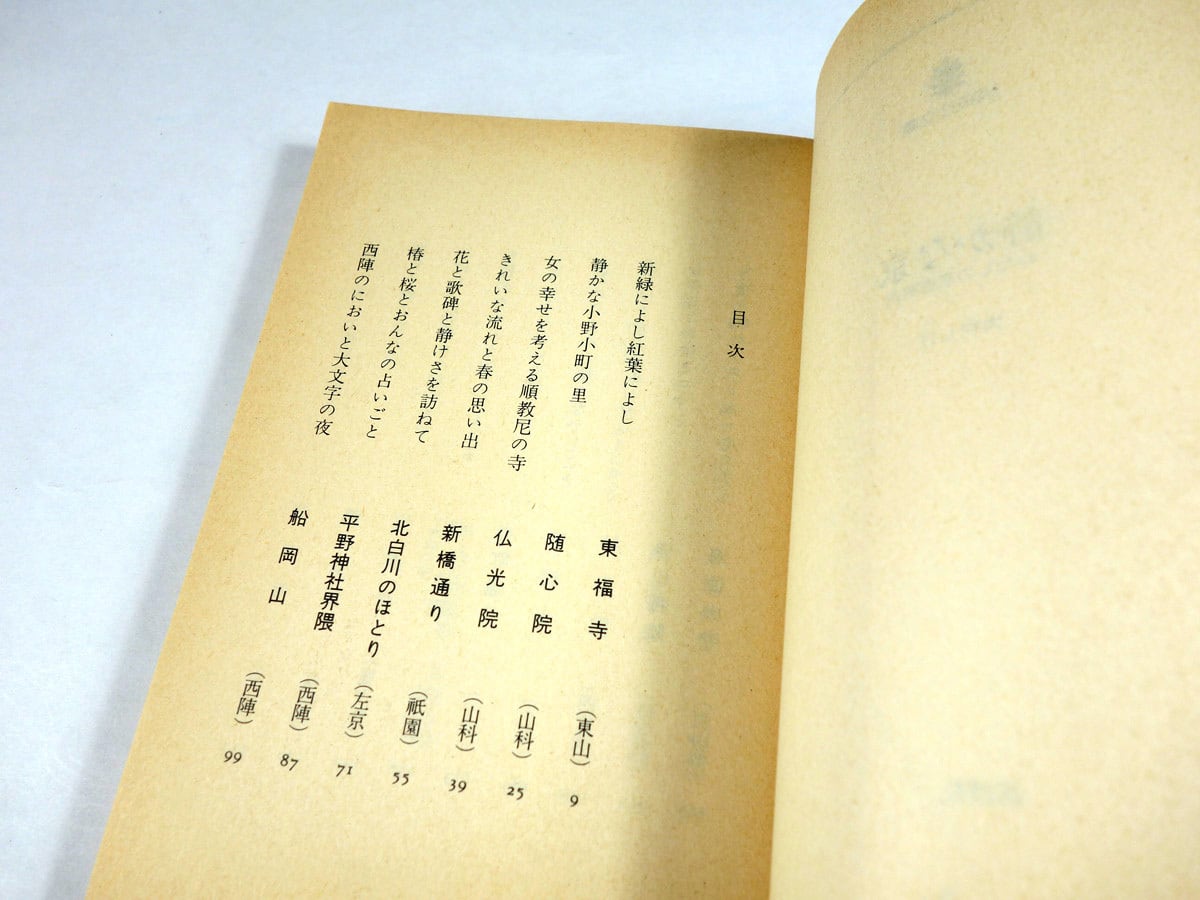 目次
新緑によし紅葉によし 東福寺 (東山) 9
静かな小野小町の里 随心院 (山科) 25
女の幸せを考える順教尼の寺 仏光院 (山科) 39
きれいな流れと春の思い出 新橋通り (祇園) 55
花と歌碑と静けさを訪ねて 北白川のほとり (左京) 71
椿と桜とおんなの占いごと 平野神社界隈 (西陣) 87
西陣のにおいと大文字の夜 船岡山 (西陣) 99